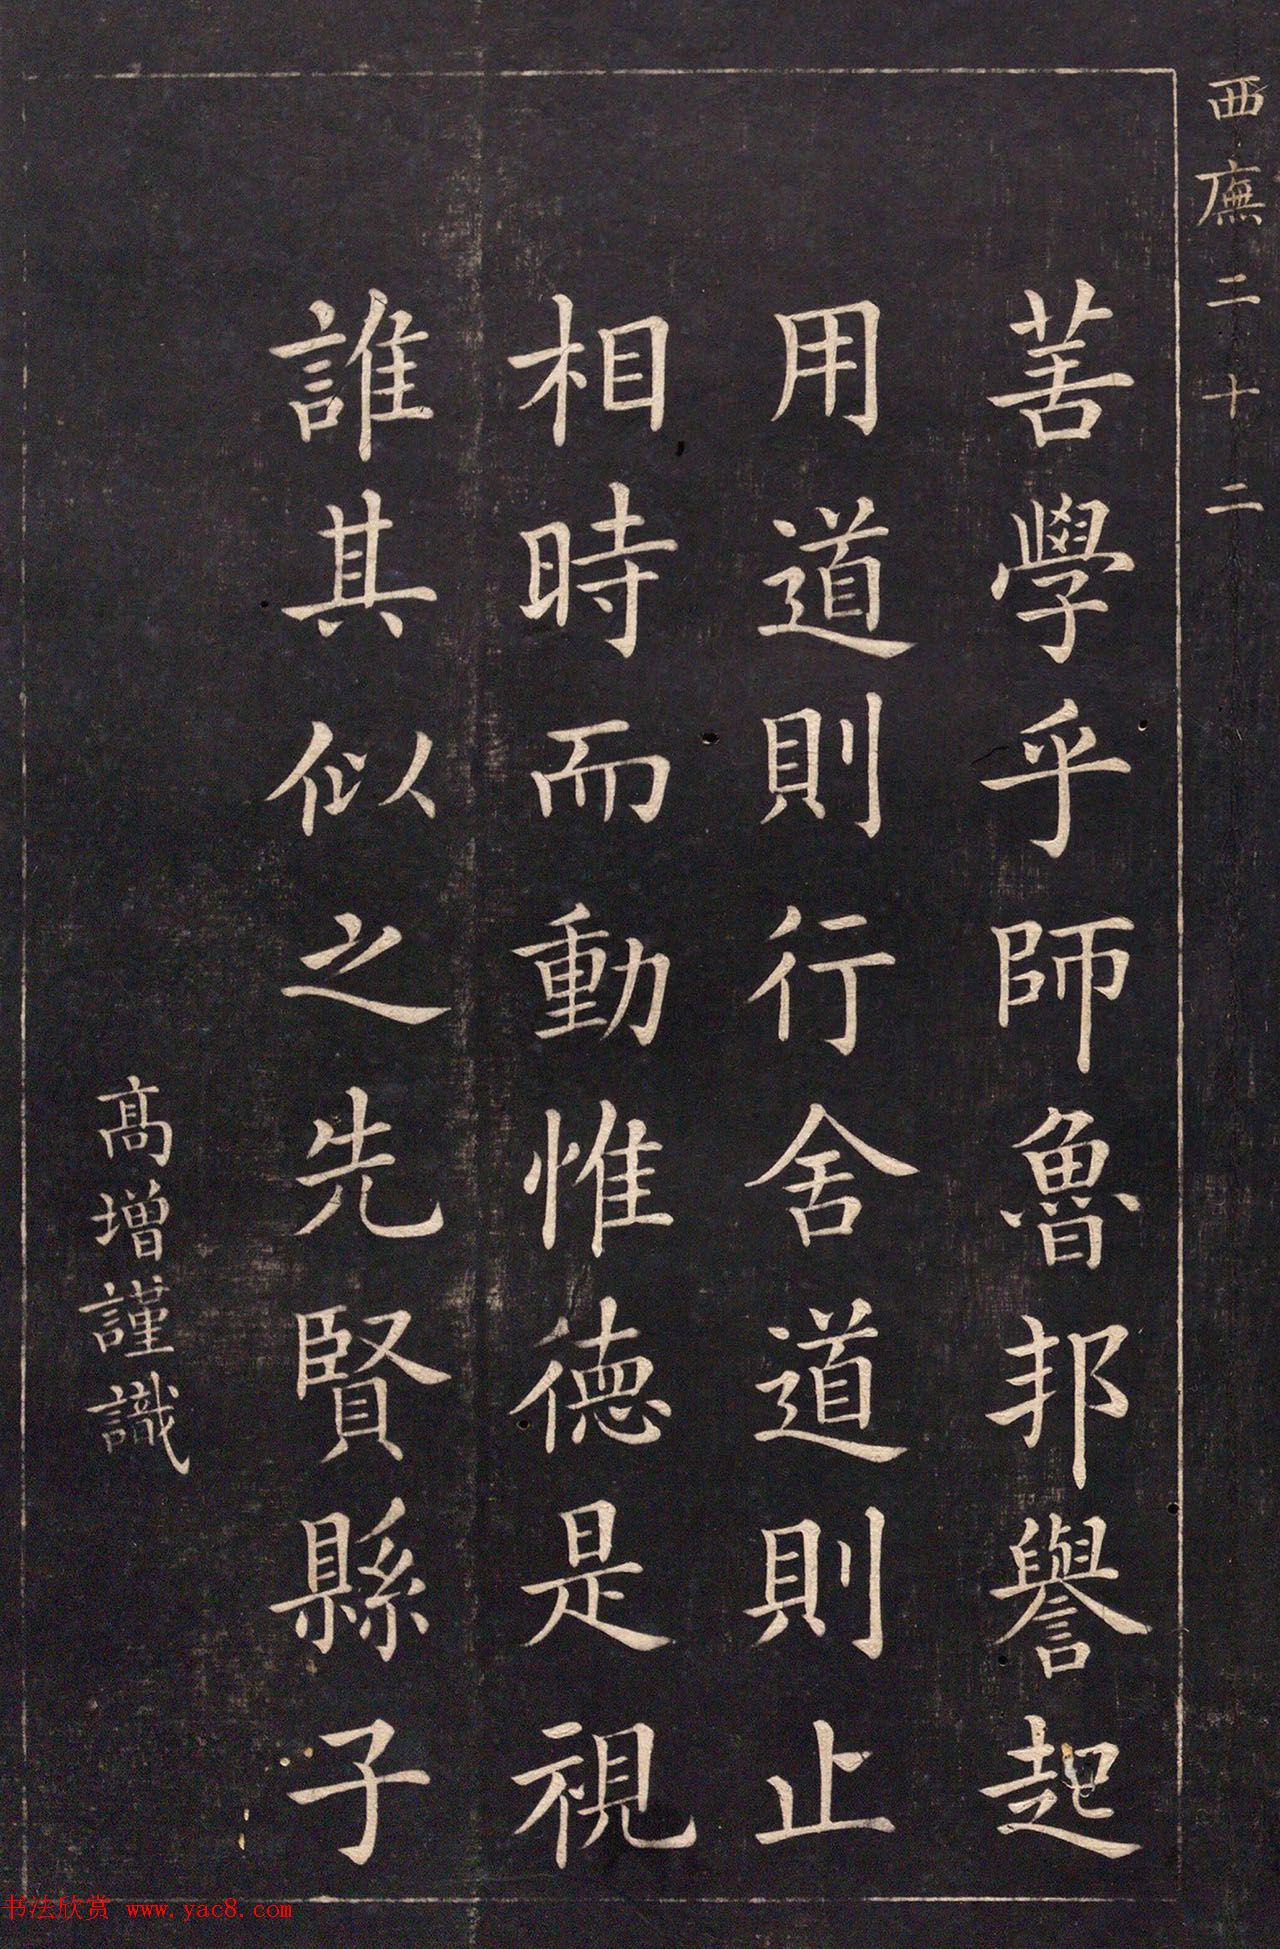 西廡二十二
苦學乎師魯邦譽起
用道則行舍道則止
相時而動惟德是視
誰其似之先賢縣子
高增謹識
书法欣赏 www.yac8.com